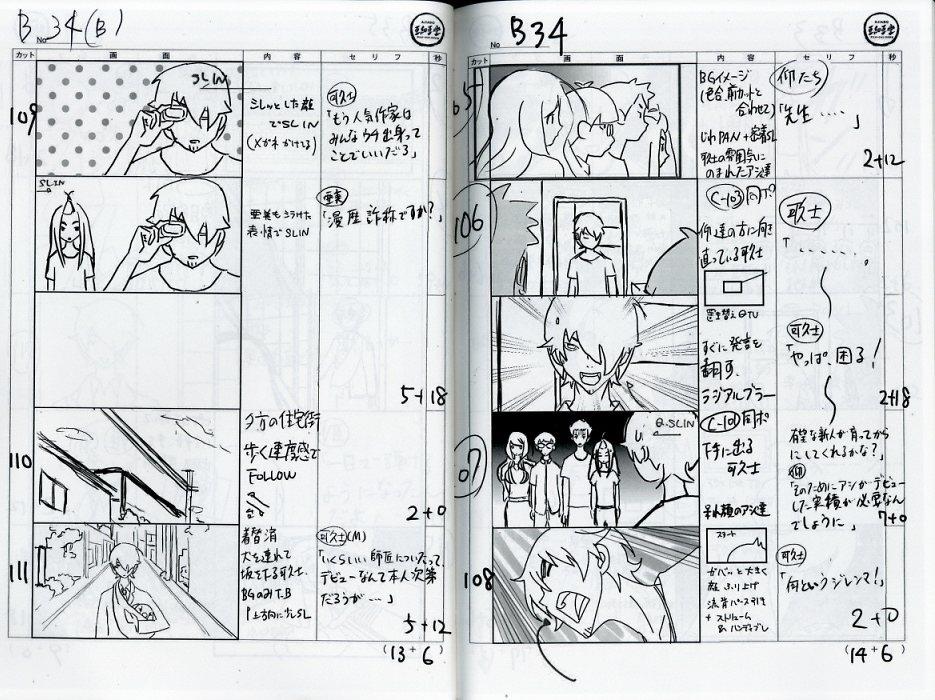 B 34 (B)
No
カット
画 面
内 容
セリフ
秒
109
SLIN
シレッとした顔
でSLIN
(メガネかけてる)
可久士
「もう人気作家は
みんなウチ出身って
ことでいいだろ」
SLIN
亜美もシラけた
表情でSLIN
亜美
「漫歴詐称ですか?」
5+18
110
夕方の住宅街
歩く速度感で
FOLLOW
2+0
111
着替済
犬を連れて
坂を下る可久士
BGのみT.B
可久士(M)
「いくらいい師匠についたって、
デビューなんて本人次第
だろうが…」
5+12
(13+6)
No
B34
カット
画 面
内 容
セリフ
秒
105
BGイメージ
(色合、前カットと
合わせて)
じわPAN+密着SL
のまれたアシ達
仰たち
「先生‥‥」
2+12
106
C-103 同ポ
仰達の方に向き
直っている可久士
すぐに発言を
翻す。
ラジアルブラー
可久士
「‥‥‥。
可久士
「やっぱ、困る!
2+18
107
SLIN
C-101 同ポ
下手に出る
可久士
呆れ顔のアシ達
有望な新人が育ってから
にしてくれるかな?」
仰
「そのためにアシがデビュー
した実績が必要なん
でしょうに」
7+0
108
スタート
ガバッと大きく
顔ふり上げ
可久士
「何というジレンマ!」
2+0
(14+6)